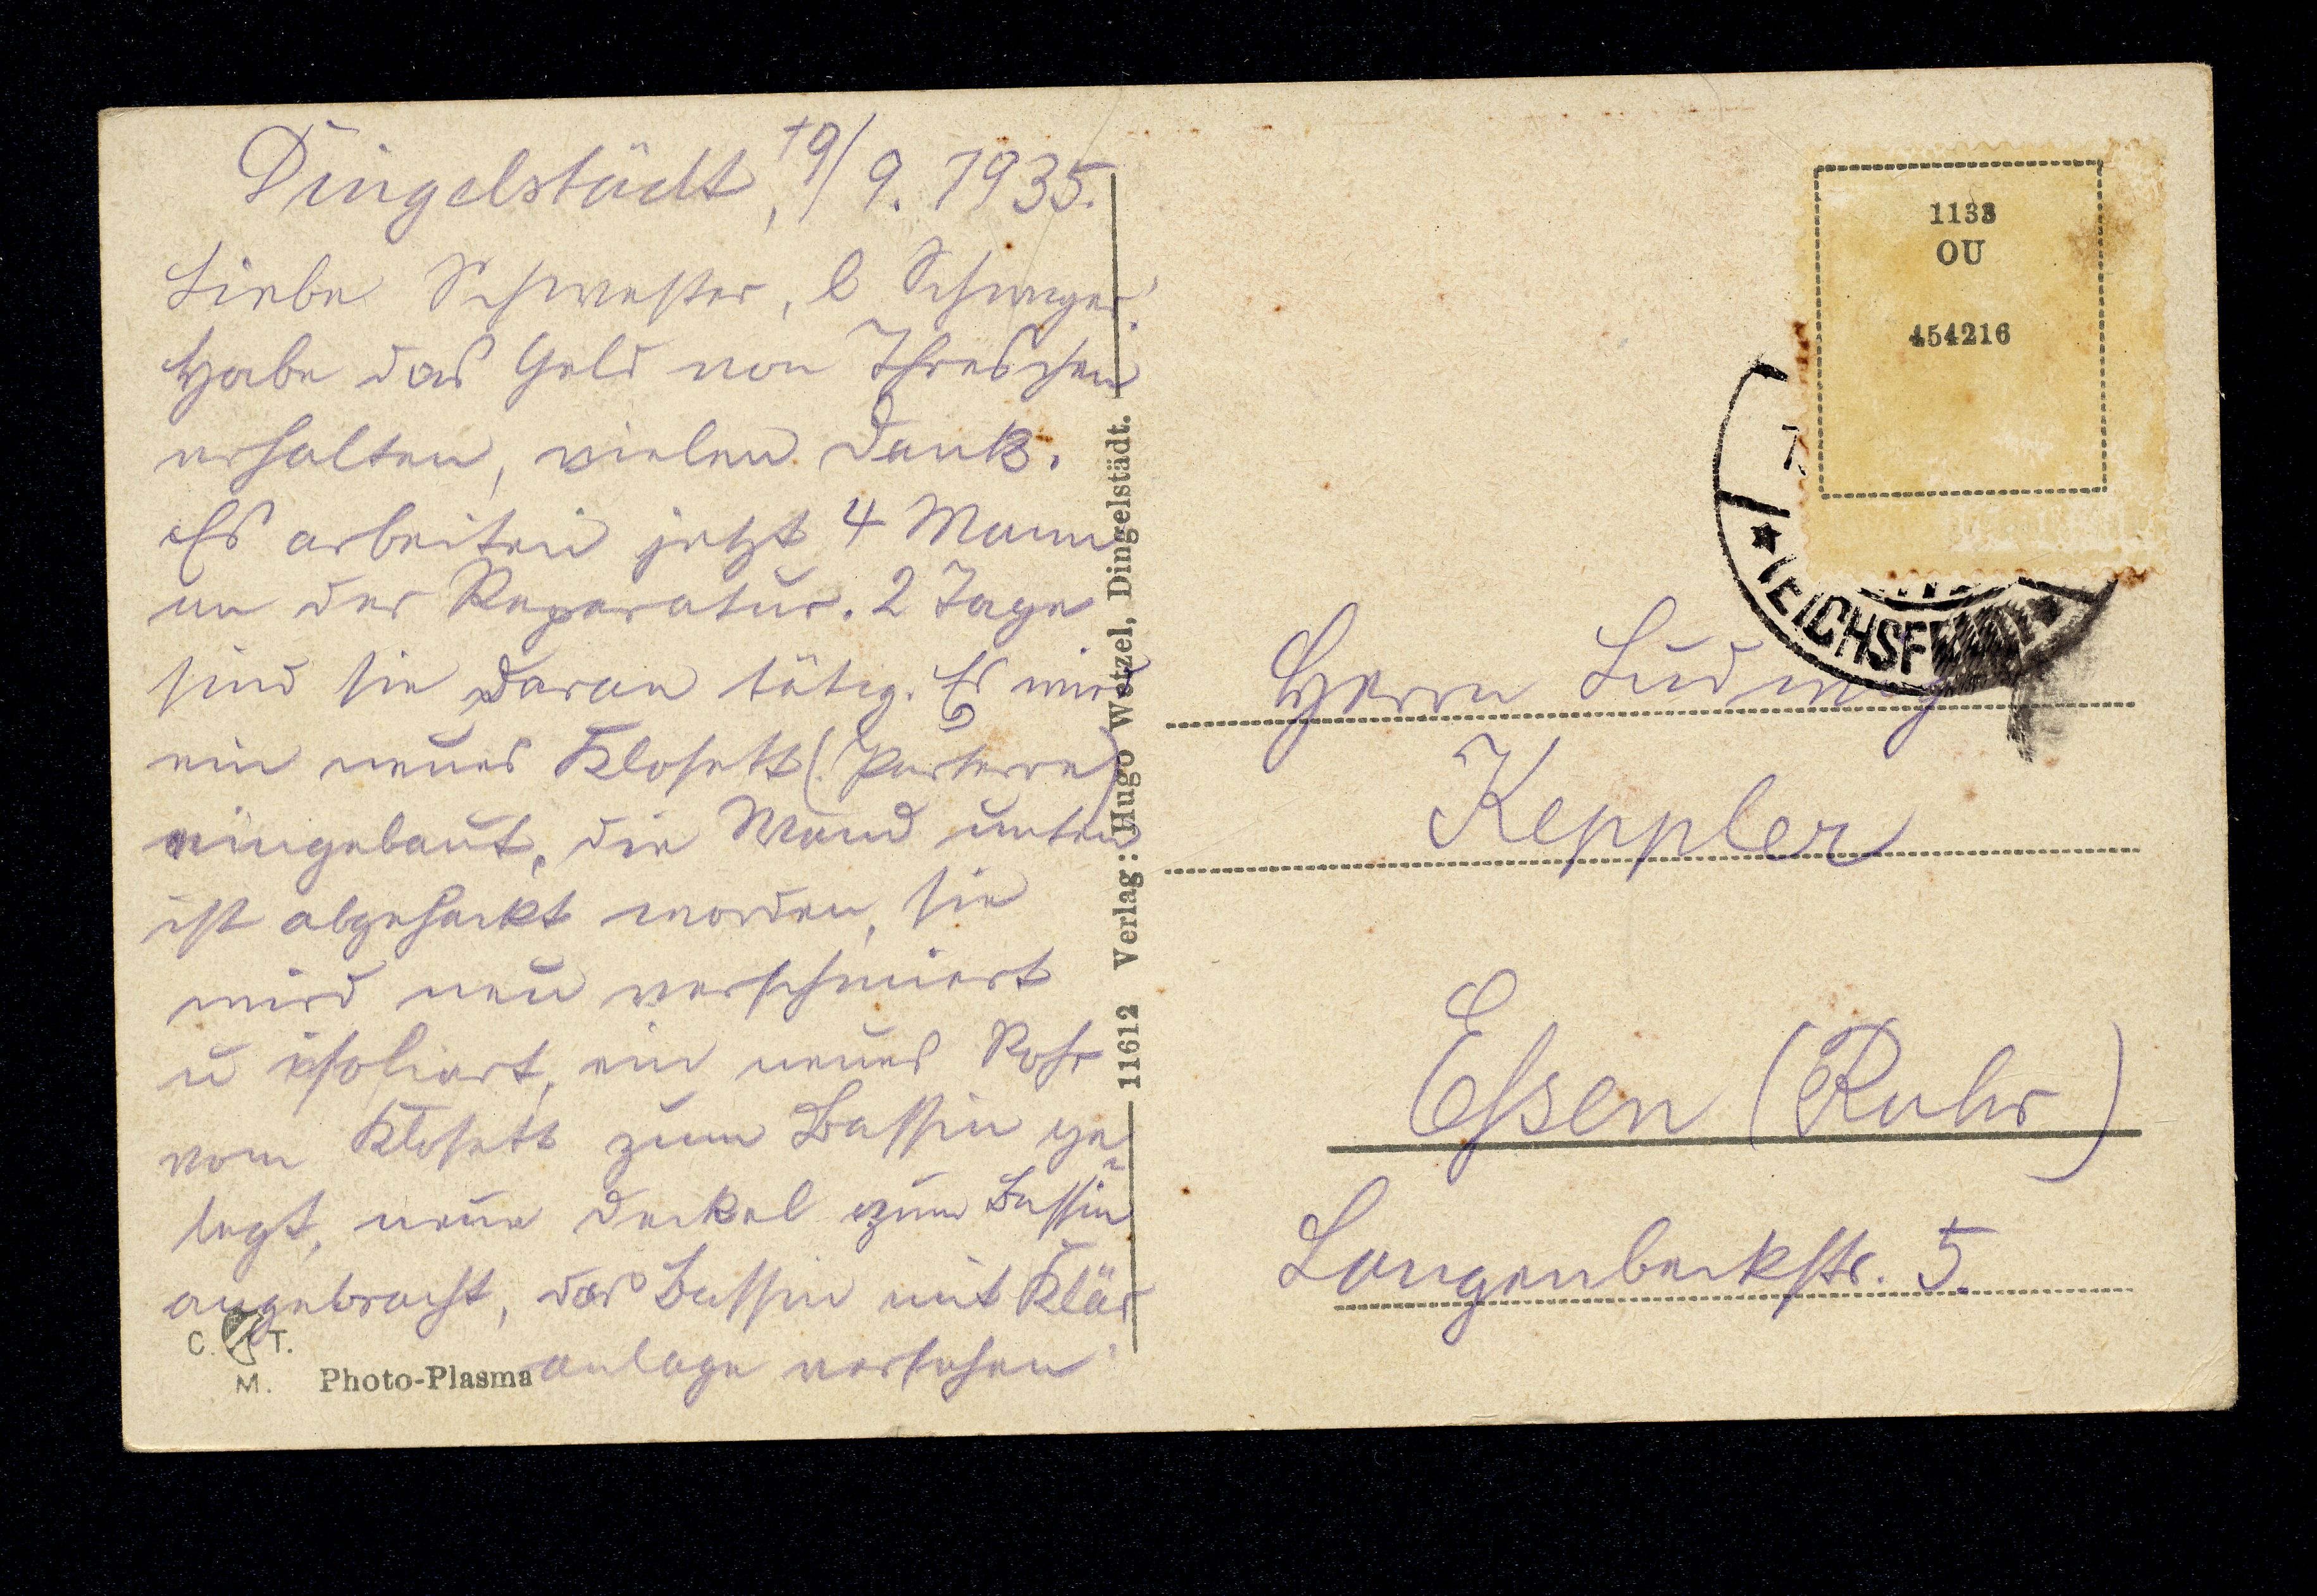 Dingelstädt, 19/9. 1935.
Liebe Schwester, l Schwager!
Habe das Geld von Threschen
erhalten, vielen Dank.
Es arbeiten jetzt 4 Mann
an der Reparatur. 2 Tage
sind sie daran tätig. Es wird
ein neues Klosett (Parterre)
eingebaut, die Wand unten
ist abgehackt worden, sie
wird neu verschmiert
u isoliert, ein neues Rohr
vom Klosett zum Bassin ge-
legt, neue Deckel zum Bassin
angebracht, das Bassin mit Klär
anlage versehen.
C. T.
M. Photo-Plasma
11612 Verlag: Hugo Wetzel, Dingelstädt.
1133
OU
454216
(EICHSF
Herrn Ludwig
Keppler
Essen (Ruhr)
Langenbeckstr. 5.